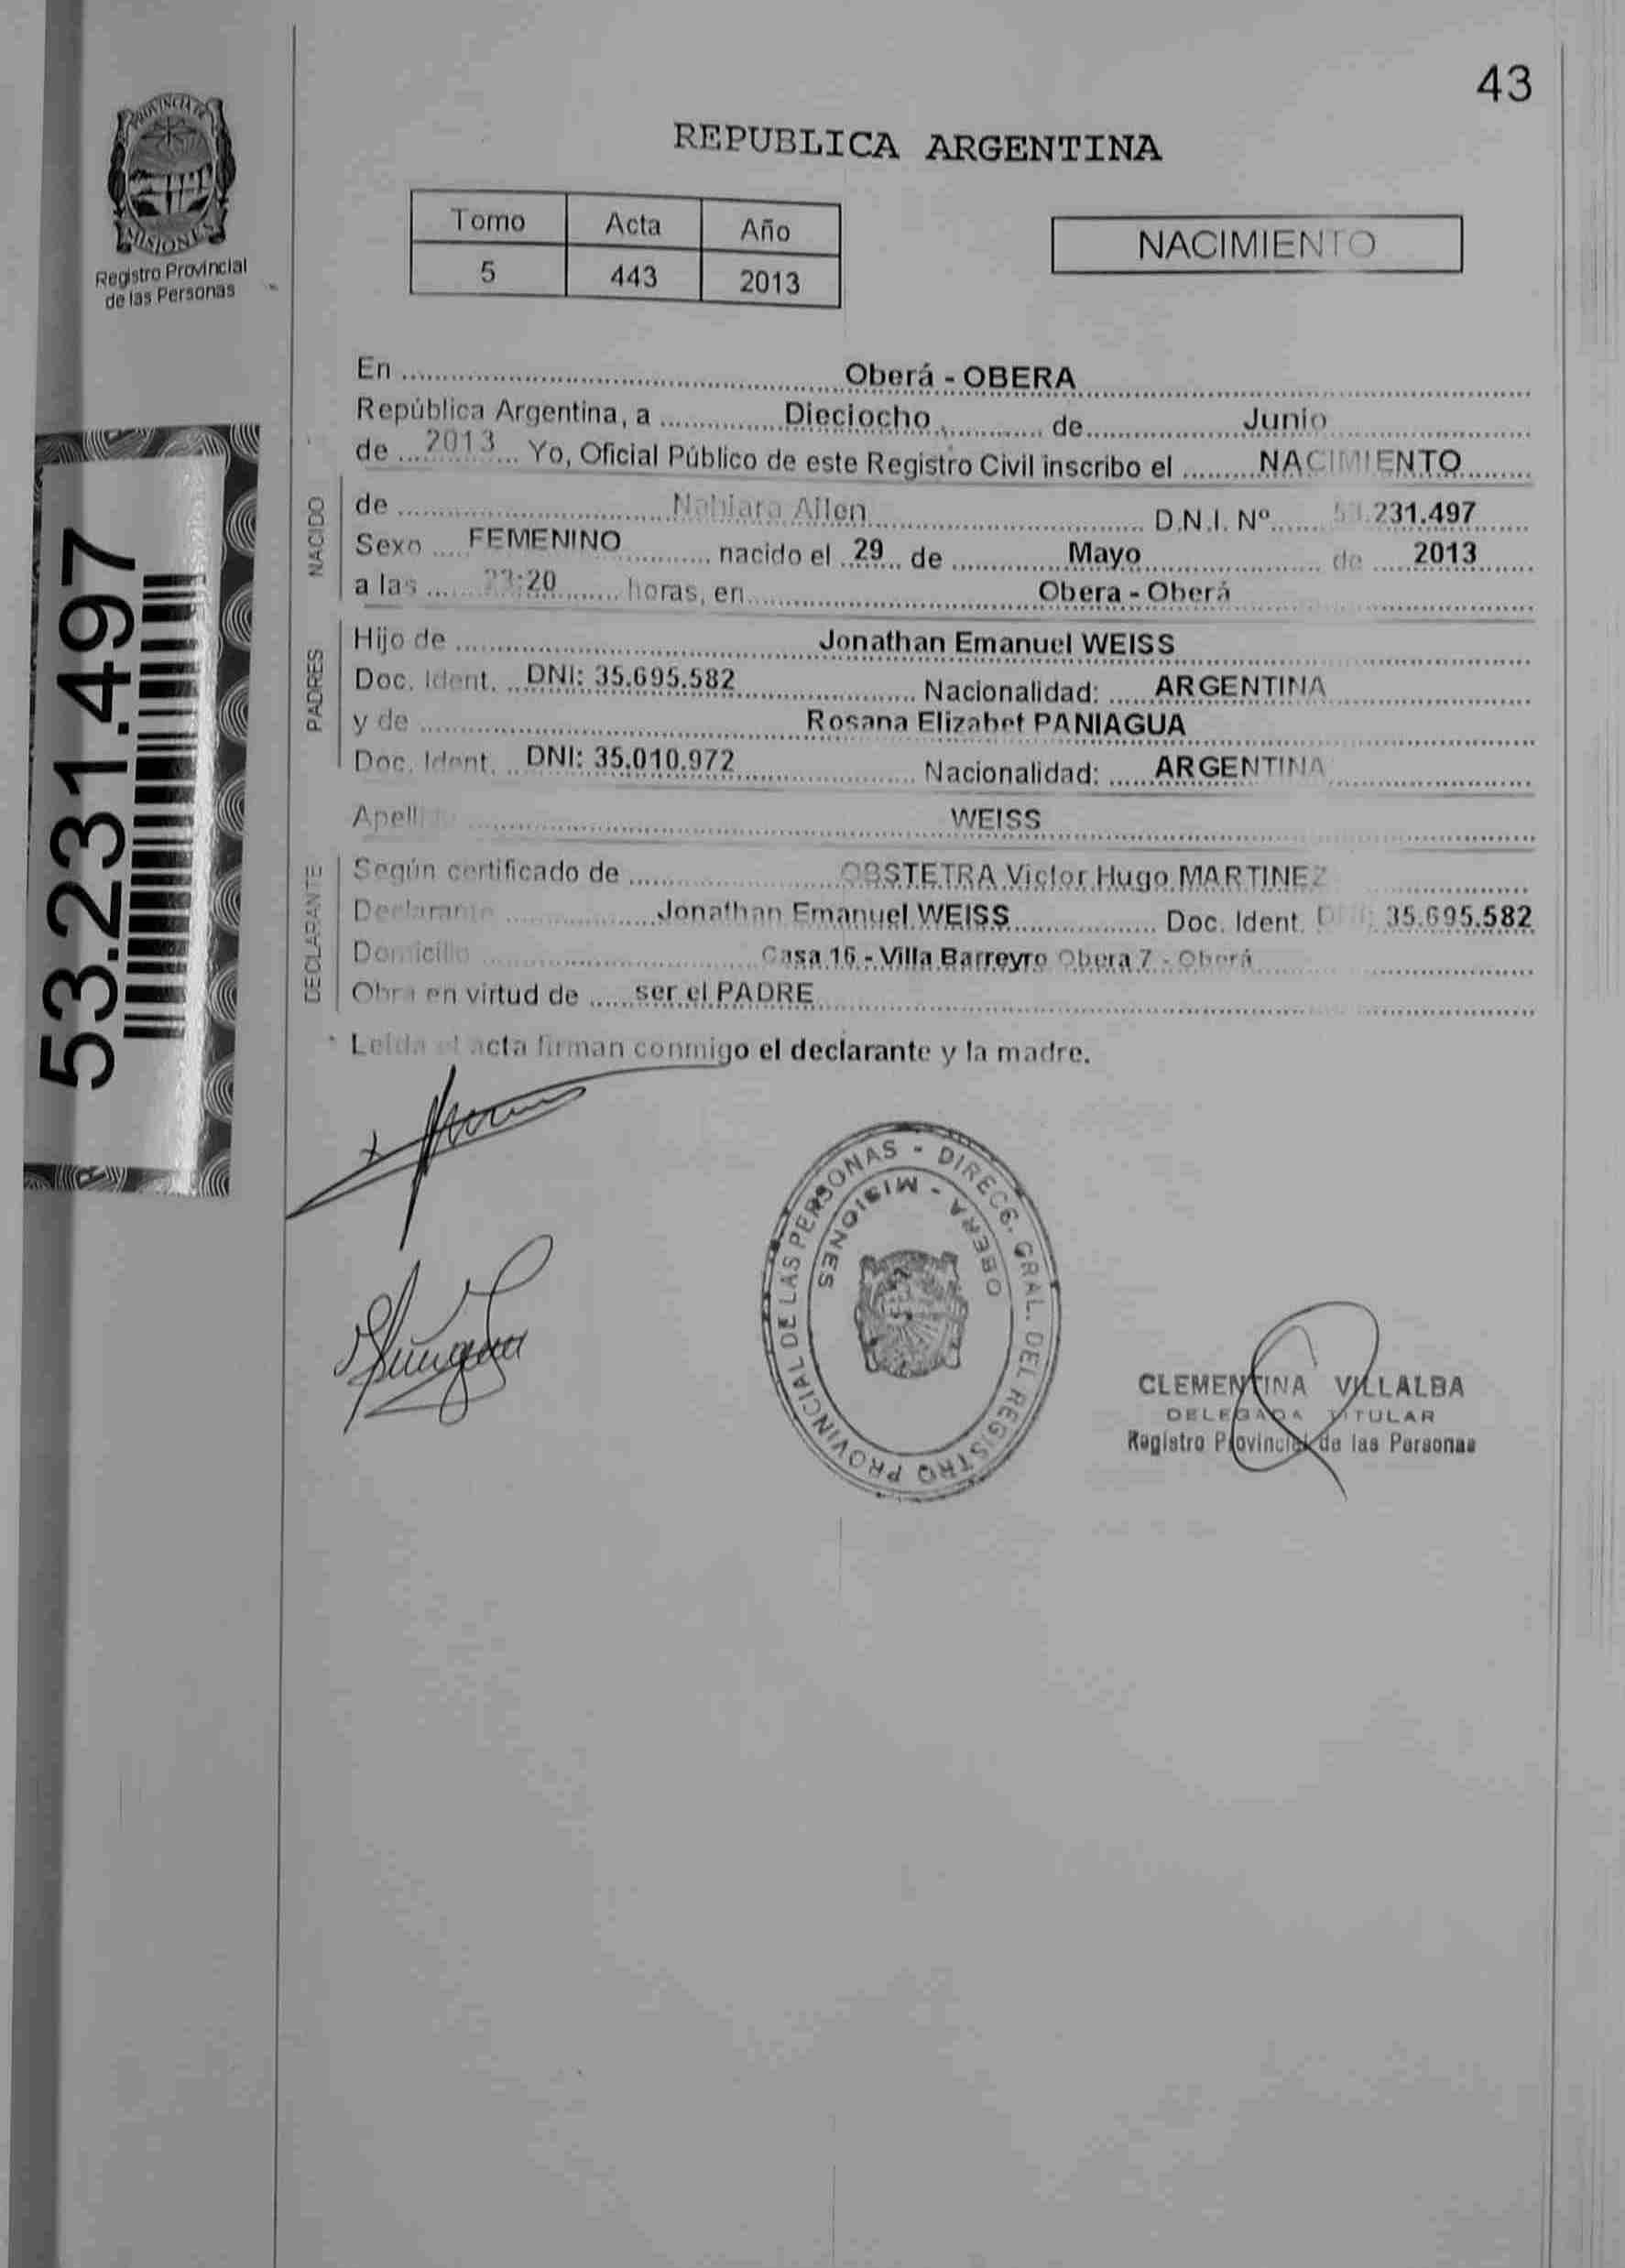 43
PROVINCIA DE
MISIONES
Registro Provincial
de las Personas
REPUBLICA ARGENTINA
Tomo Acta Año
5 443 2013
NACIMIENTO
53.231.497
En Oberá - OBERA
República Argentina, a Dieciocho de Junio
de 2013 Yo, Oficial Público de este Registro Civil inscribo el NACIMIENTO
NACIDO
de D.N.I. Nº 53.231.497
Sexo FEMENINO nacido el 29 de Mayo de 2013
a las 23:20 horas, en Obera - Oberá
PADRES
Hijo de Jonathan Emanuel WEISS
Doc. Ident. DNI: 35.695.582 Nacionalidad: ARGENTINA
y de Rosana Elizabet PANIAGUA
Doc. Ident. DNI: 35.010.972 Nacionalidad: ARGENTINA
Apellido WEISS
DECLARANTE
Según certificado de OBSTETRA Victor Hugo MARTINEZ
Declarante Jonathan Emanuel WEISS Doc. Ident. DNI: 35.695.582
Domicilio Casa 16 - Villa Barreyro Obera 7 - Oberá
Obra en virtud de ser el PADRE
Leída el acta firman conmigo el declarante y la madre.
DIRECC. GRAL. DEL REGISTRO PROVINCIAL DE LAS PERSONAS -
OBERA - MISIONES
CLEMENTINA VILLALBA
DELEGADA TITULAR
Registro Provincial de las Personas